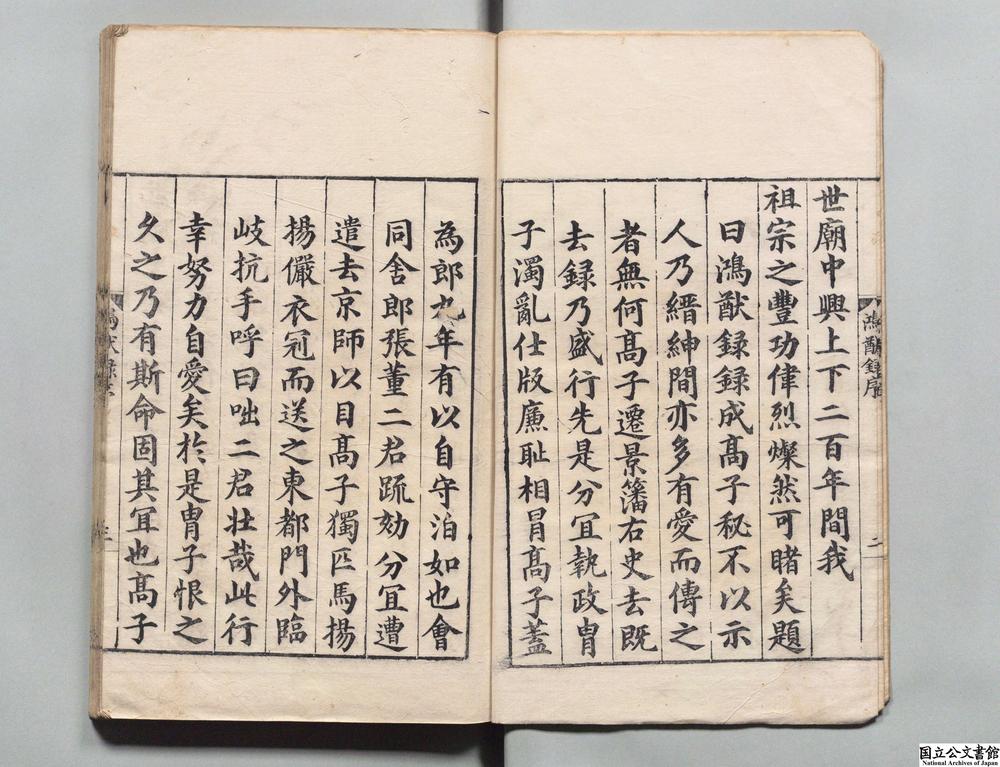 鴻猷錄序
二
世廟中興上下二百年間我
祖宗之豐功偉烈燦然可睹矣題
曰鴻猷録録成髙子秘不以示
人乃縉紳間亦多有愛而傳之
者無何髙子遷景籓右史去既
去録乃盛行先是分宜執政胄
子濁亂仕版廉耻相冐髙子蓋
為郎九年有以自守泊如也會
同舍郎張董二君䟽劾分宜遭
遣去京師以目髙子獨匹馬揚
揚儼衣冠而送之東都門外臨
岐抗手呼曰咄二君壮哉此行
幸努力自愛矣於是胄子恨之
久之乃有斯命固其冝也髙子
国立公文書館
National Archives of Japan